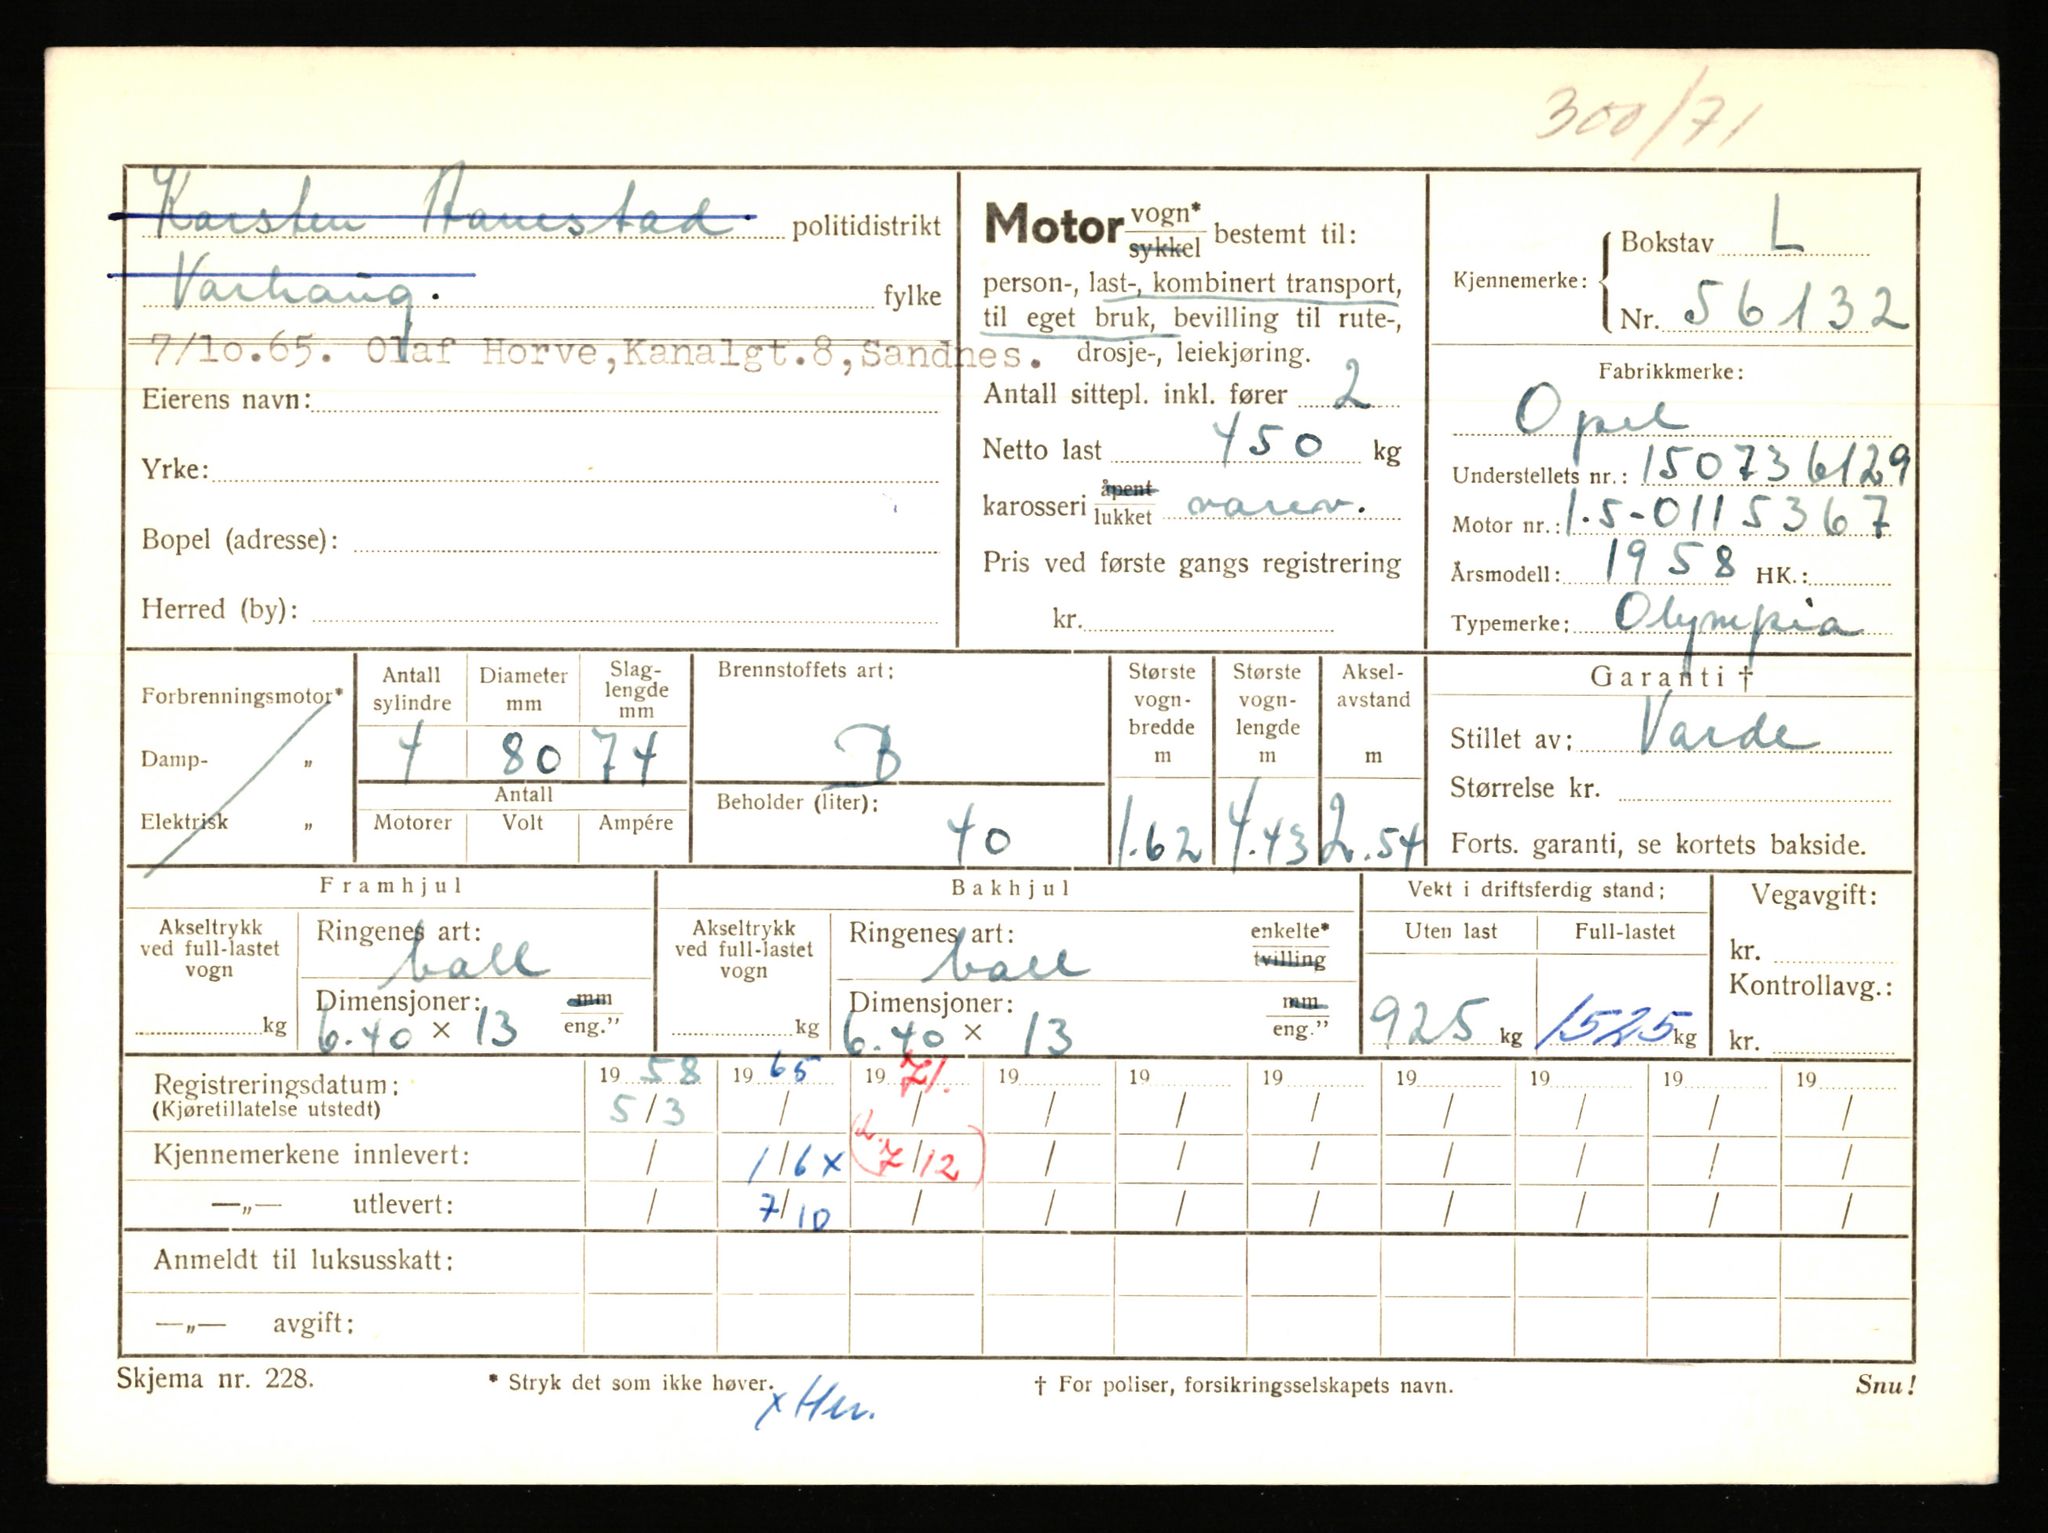 300/71
Karsten Hanestad politidistrikt
Varhaug. fylke
7/10.65. Olaf Horve,Kanalgt.8,Sandnes.
Eierens navn:
Yrke:
Bopel (adresse):
Herred (by):
Motor vogn* sykkel bestemt til:
person-, last-, kombinert transport,
til eget bruk, bevilling til rute-,
drosje-, leiekjøring.
Antall sittepl. inkl. fører 2
Netto last 450 kg
karosseri åpent lukket varev.
Pris ved første gangs registrering
kr.
Kjennemerke: Bokstav L
Nr. 56132
Fabrikkmerke:
Opel
Understellets nr.: 150736129
Motor nr.: 1.5-0115367
Årsmodell: 1958 HK.:
Typemerke: Olympia
Forbrenningsmotor*
Damp- „
Elektrisk „
Antall sylindre Diameter mm Slag-lengde mm
4 80 74
Antall
Motorer Volt Ampére
Brennstoffets art:
B
Beholder (liter):
40
Største vogn-bredde m
1.62
Største vogn-lengde m
4.43
Aksel-avstand m
2.54
Garanti †
Stillet av: Varde
Størrelse kr.
Forts. garanti, se kortets bakside.
Framhjul
Akseltrykk ved full-lastet vogn
kg
Ringenes art:
ball
Dimensjoner: mm eng.”
6.40 × 13
Bakhjul
Akseltrykk ved full-lastet vogn
kg
Ringenes art: enkelte* tvilling
ball
Dimensjoner: mm eng.”
6.40 × 13
Vekt i driftsferdig stand:
Uten last Full-lastet
925 kg 1525 kg
Vegavgift:
kr.
Kontrollavg.:
kr.
Registreringsdatum: 19 58 19 65 19 71. 19 19 19 19 19 19 19
(Kjøretillatelse utstedt) 5/3 / / / / / / / / /
Kjennemerkene innlevert: / 1/6 x 7/12 / / / / / / /
—„— utlevert: / 7/10 / / / / / / / /
Anmeldt til luksusskatt:
—„— avgift:
Skjema nr. 228. * Stryk det som ikke høver. † For poliser, forsikringsselskapets navn. Snu!